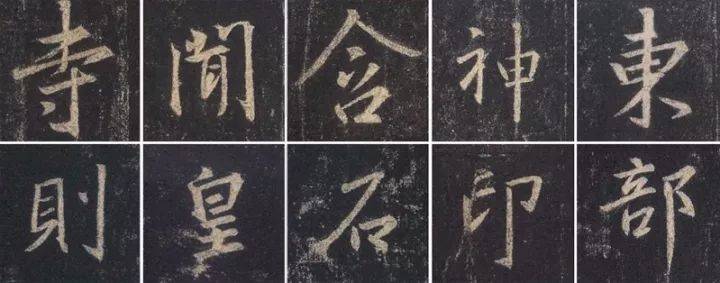 寺閒含神東
則皇石印部